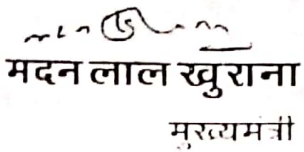 मदन लाल खुराना
मुख्यमंत्री